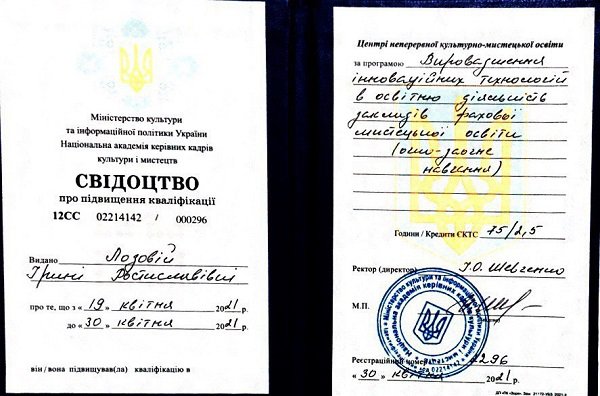 Міністерство культури
та інформаційної політики України
Національна академія керівних кадрів
культури і мистецтв
СВІДОЦТВО
про підвищення кваліфікації
12СС 02214142 / 000296
Видано Лозовій
Ірині Ростиславівні
про те, що з « 19 » квітня 2021р.
до « 30 » квітня 2021р.
він/вона підвищував(ла) кваліфікацію в
Центрі неперервної культурно-мистецької освіти
за програмою Впровадження
інноваційних технологій
в освітню діяльність
закладів фахової
мистецької освіти
(очно-заочне
навчання)
Години / Кредити ЄКТС 75/2,5
Ректор (директор)
М.П.
Реєстраційний номер 296
« 30 » квітня 2021р.